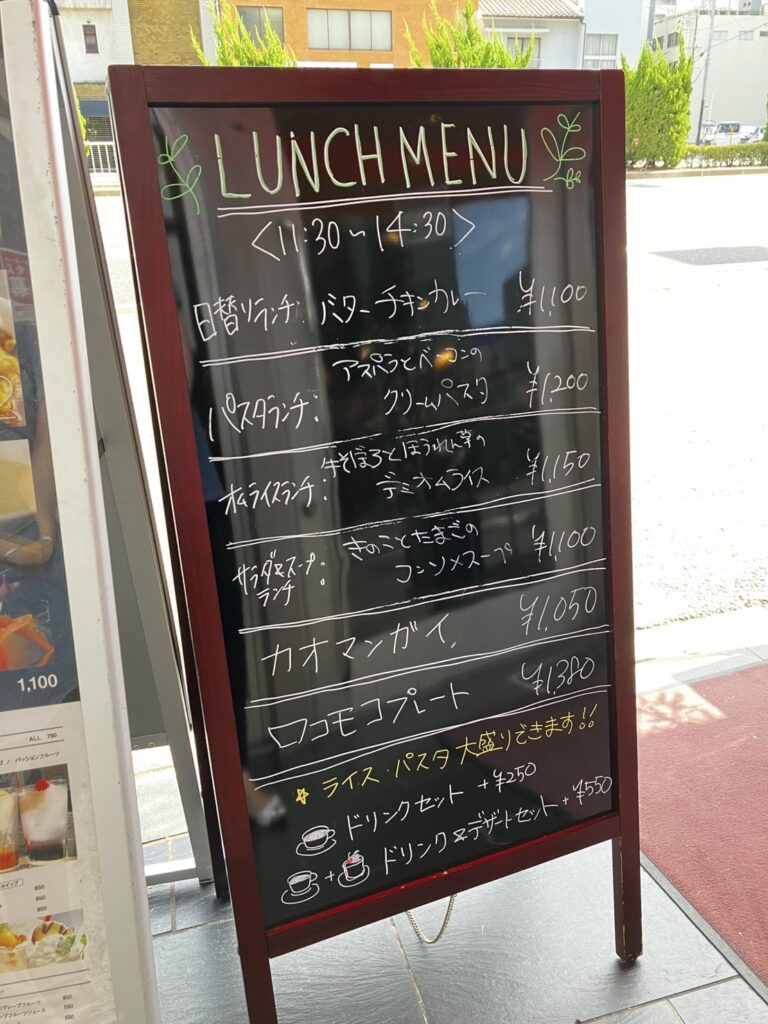 LUNCH MENU
<11:30~14:30>
日替りランチ: バターチキンカレー ¥1,100
パスタランチ: アスパラとベーコンの
クリームパスタ ¥1,200
オムライスランチ: 牛そぼろとほうれん草の
デミオムライス ¥1,150
サラダ&スープ
ランチ: きのことたまごの
コンソメスープ ¥1,100
カオマンガイ ¥1,050
ロコモコプレート ¥1,380
☆ ライス・パスタ 大盛りできます!!
ドリンクセット +¥250
+ ドリンク&デザートセット +¥550
1,100
ALL 780
/ パッションフルーツ
ホイップ 850
850
850
グレープフルーツ
グレープフルーツジュース